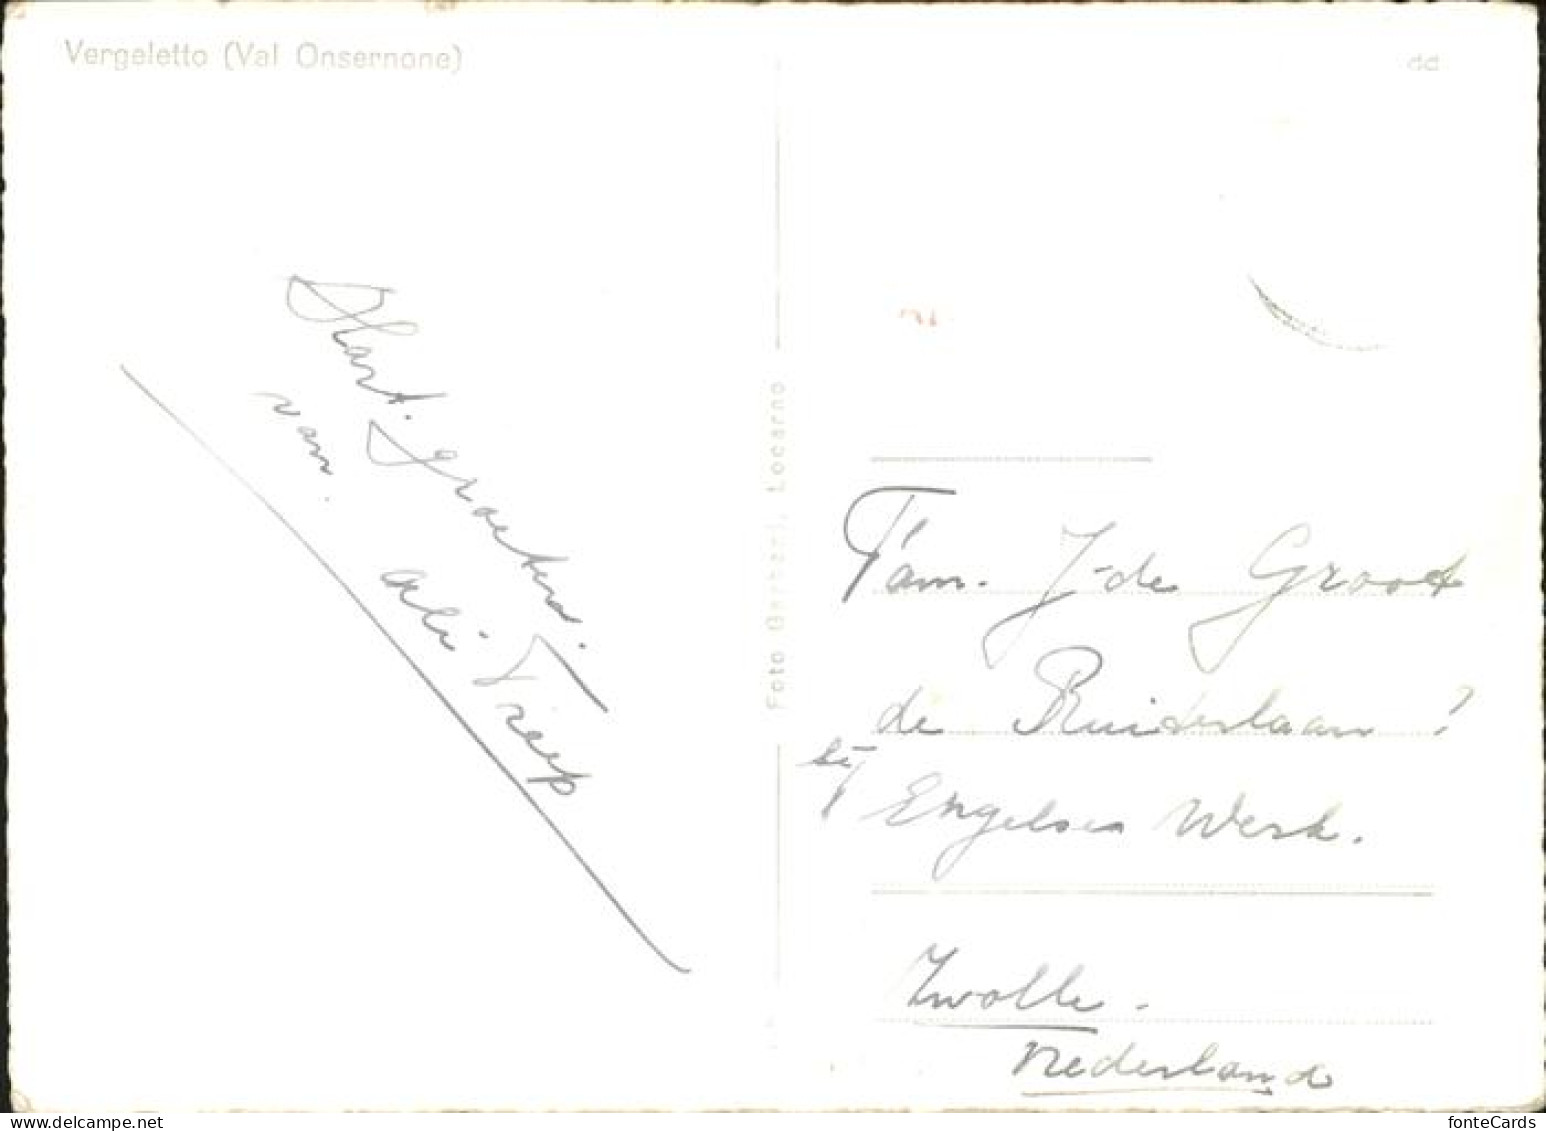 Vergeletto (Val Onsernone)
Hart. groeten.
van.
Ali Treep
Foto Garbani, Locarno
Fam. J-de Groot
de Ruiterlaan ?
bij Engelse Werk.
Zwolle.
Nederland
fonteCards